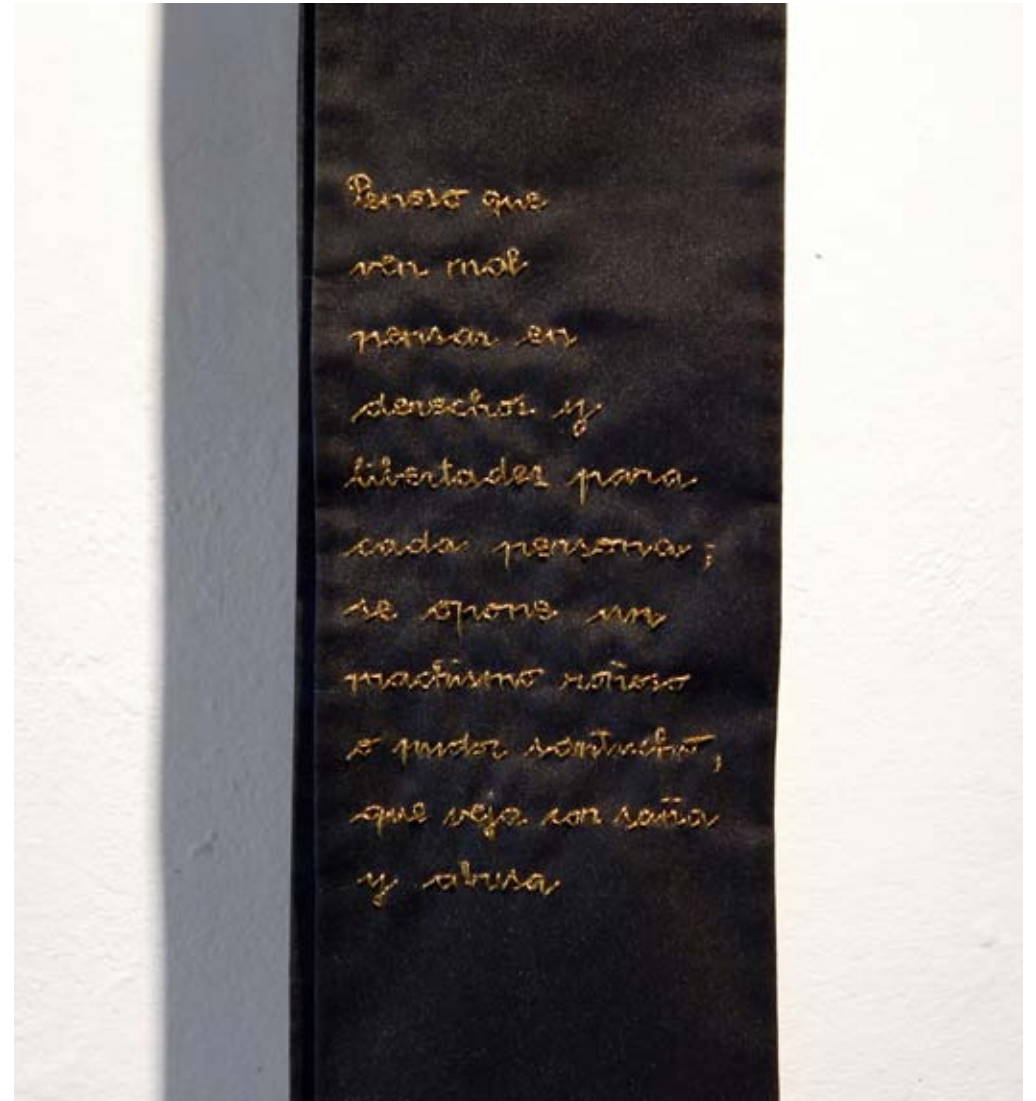 Penoso que
ven mal
pensar en
derechos y
libertades para
cada persona;
se opone un
machismo roñoso
o pudor santucho,
que veja con saña
y abusa